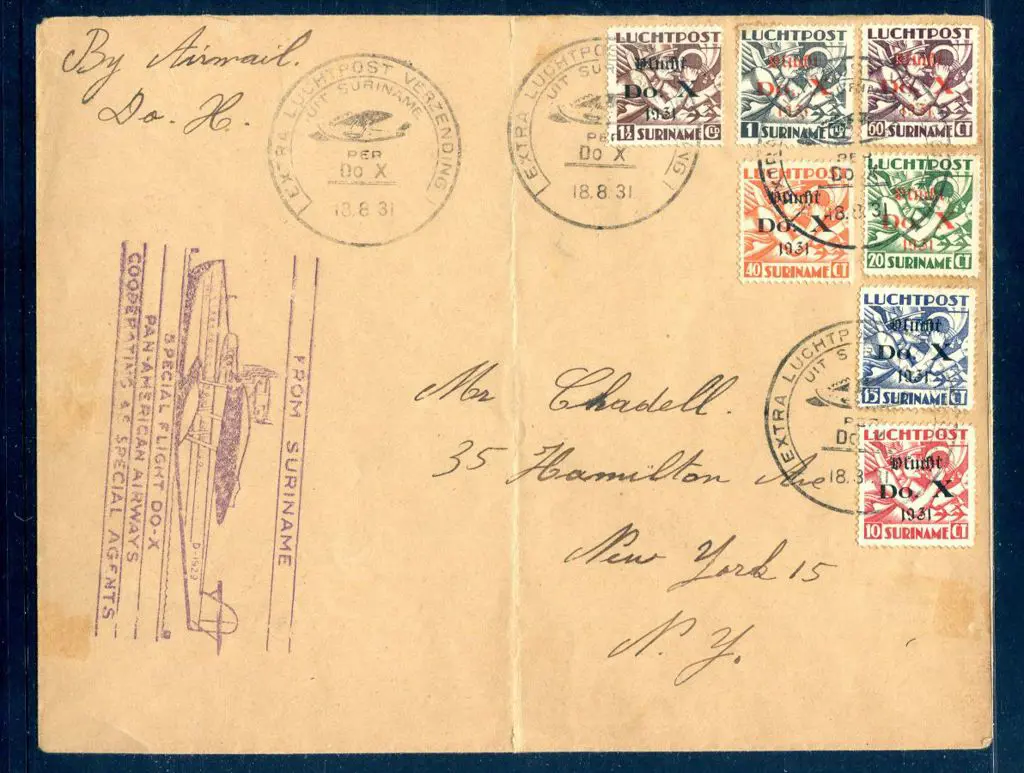 By Airmail.
Do. X.
EXTRA LUCHTPOST VERZENDING
UIT SURINAME
PER
Do X
18.8.31
EXTRA LUCHTPOST
UIT SU
PER
Do X
18.8.31
LUCHTPOST
Vlucht
Do. X
1931
1½ SURINAME GD
LUCHTPOST
Vlucht
Do. X
1931
1 SURINAME GD
LUCHTPOST
Vlucht
Do. X
1931
60 SURINAME CT
LUCHTPOST
Vlucht
Do. X
1931
40 SURINAME CT
LUCHTPOST
Vlucht
Do. X
1931
20 SURINAME CT
PER
Do X
18.8.31
LUCHTPOST
Vlucht
Do. X
1931
15 SURINAME CT
EXTRA LUCHTP
UIT S
PER
Do
18.8.31
LUCHTPOST
Vlucht
Do. X
1931
10 SURINAME CT
FROM SURINAME
D-1929
SPECIAL FLIGHT DO-X
PAN-AMERICAN AIRWAYS
COOPERATING as SPECIAL AGENTS
Mr Chadell.
35 Hamilton Ave
New York 15
N. Y.